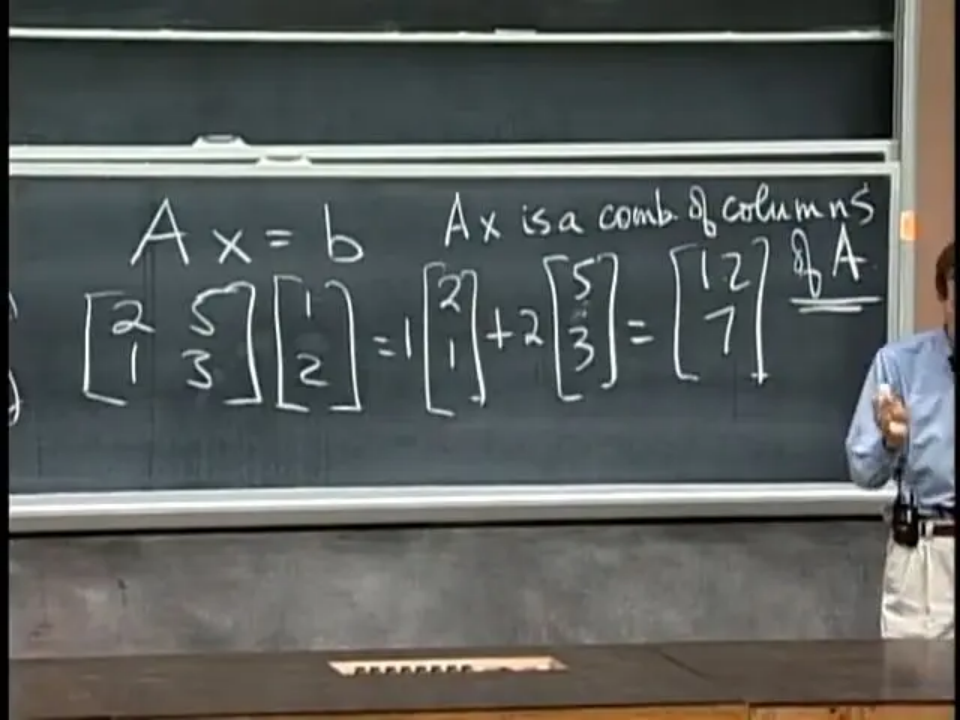 A x = b
Ax is a comb. of columns
of A
[2 5] [1] = 1 [2] + 2 [5] = [12]
[1 3] [2] [1] [3] [7]